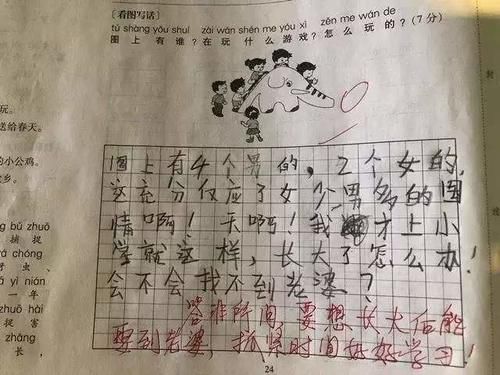 【看图写话】
tú shàng yǒu shuí zài wán shén me yóu xì zěn me wán de
图 上 有 谁？在 玩 什 么 游 戏？怎 么 玩 的？（7 分）
图上有4个男的，2个女的，
这充分仅应了女少男多的国
情啊！天啊！我才上小
学就这样，长大了怎么办！
会不会找不到老婆？
答非所问，要想长大后能
娶到老婆，抓紧时间好好学习！
24
玩。
送给春天。
的小公鸡。
乡。
bǔ zhuō
捕 捉
chóng
虫、
yì nián
一 年
zhuō hài
捉 害
zhǎng
长，